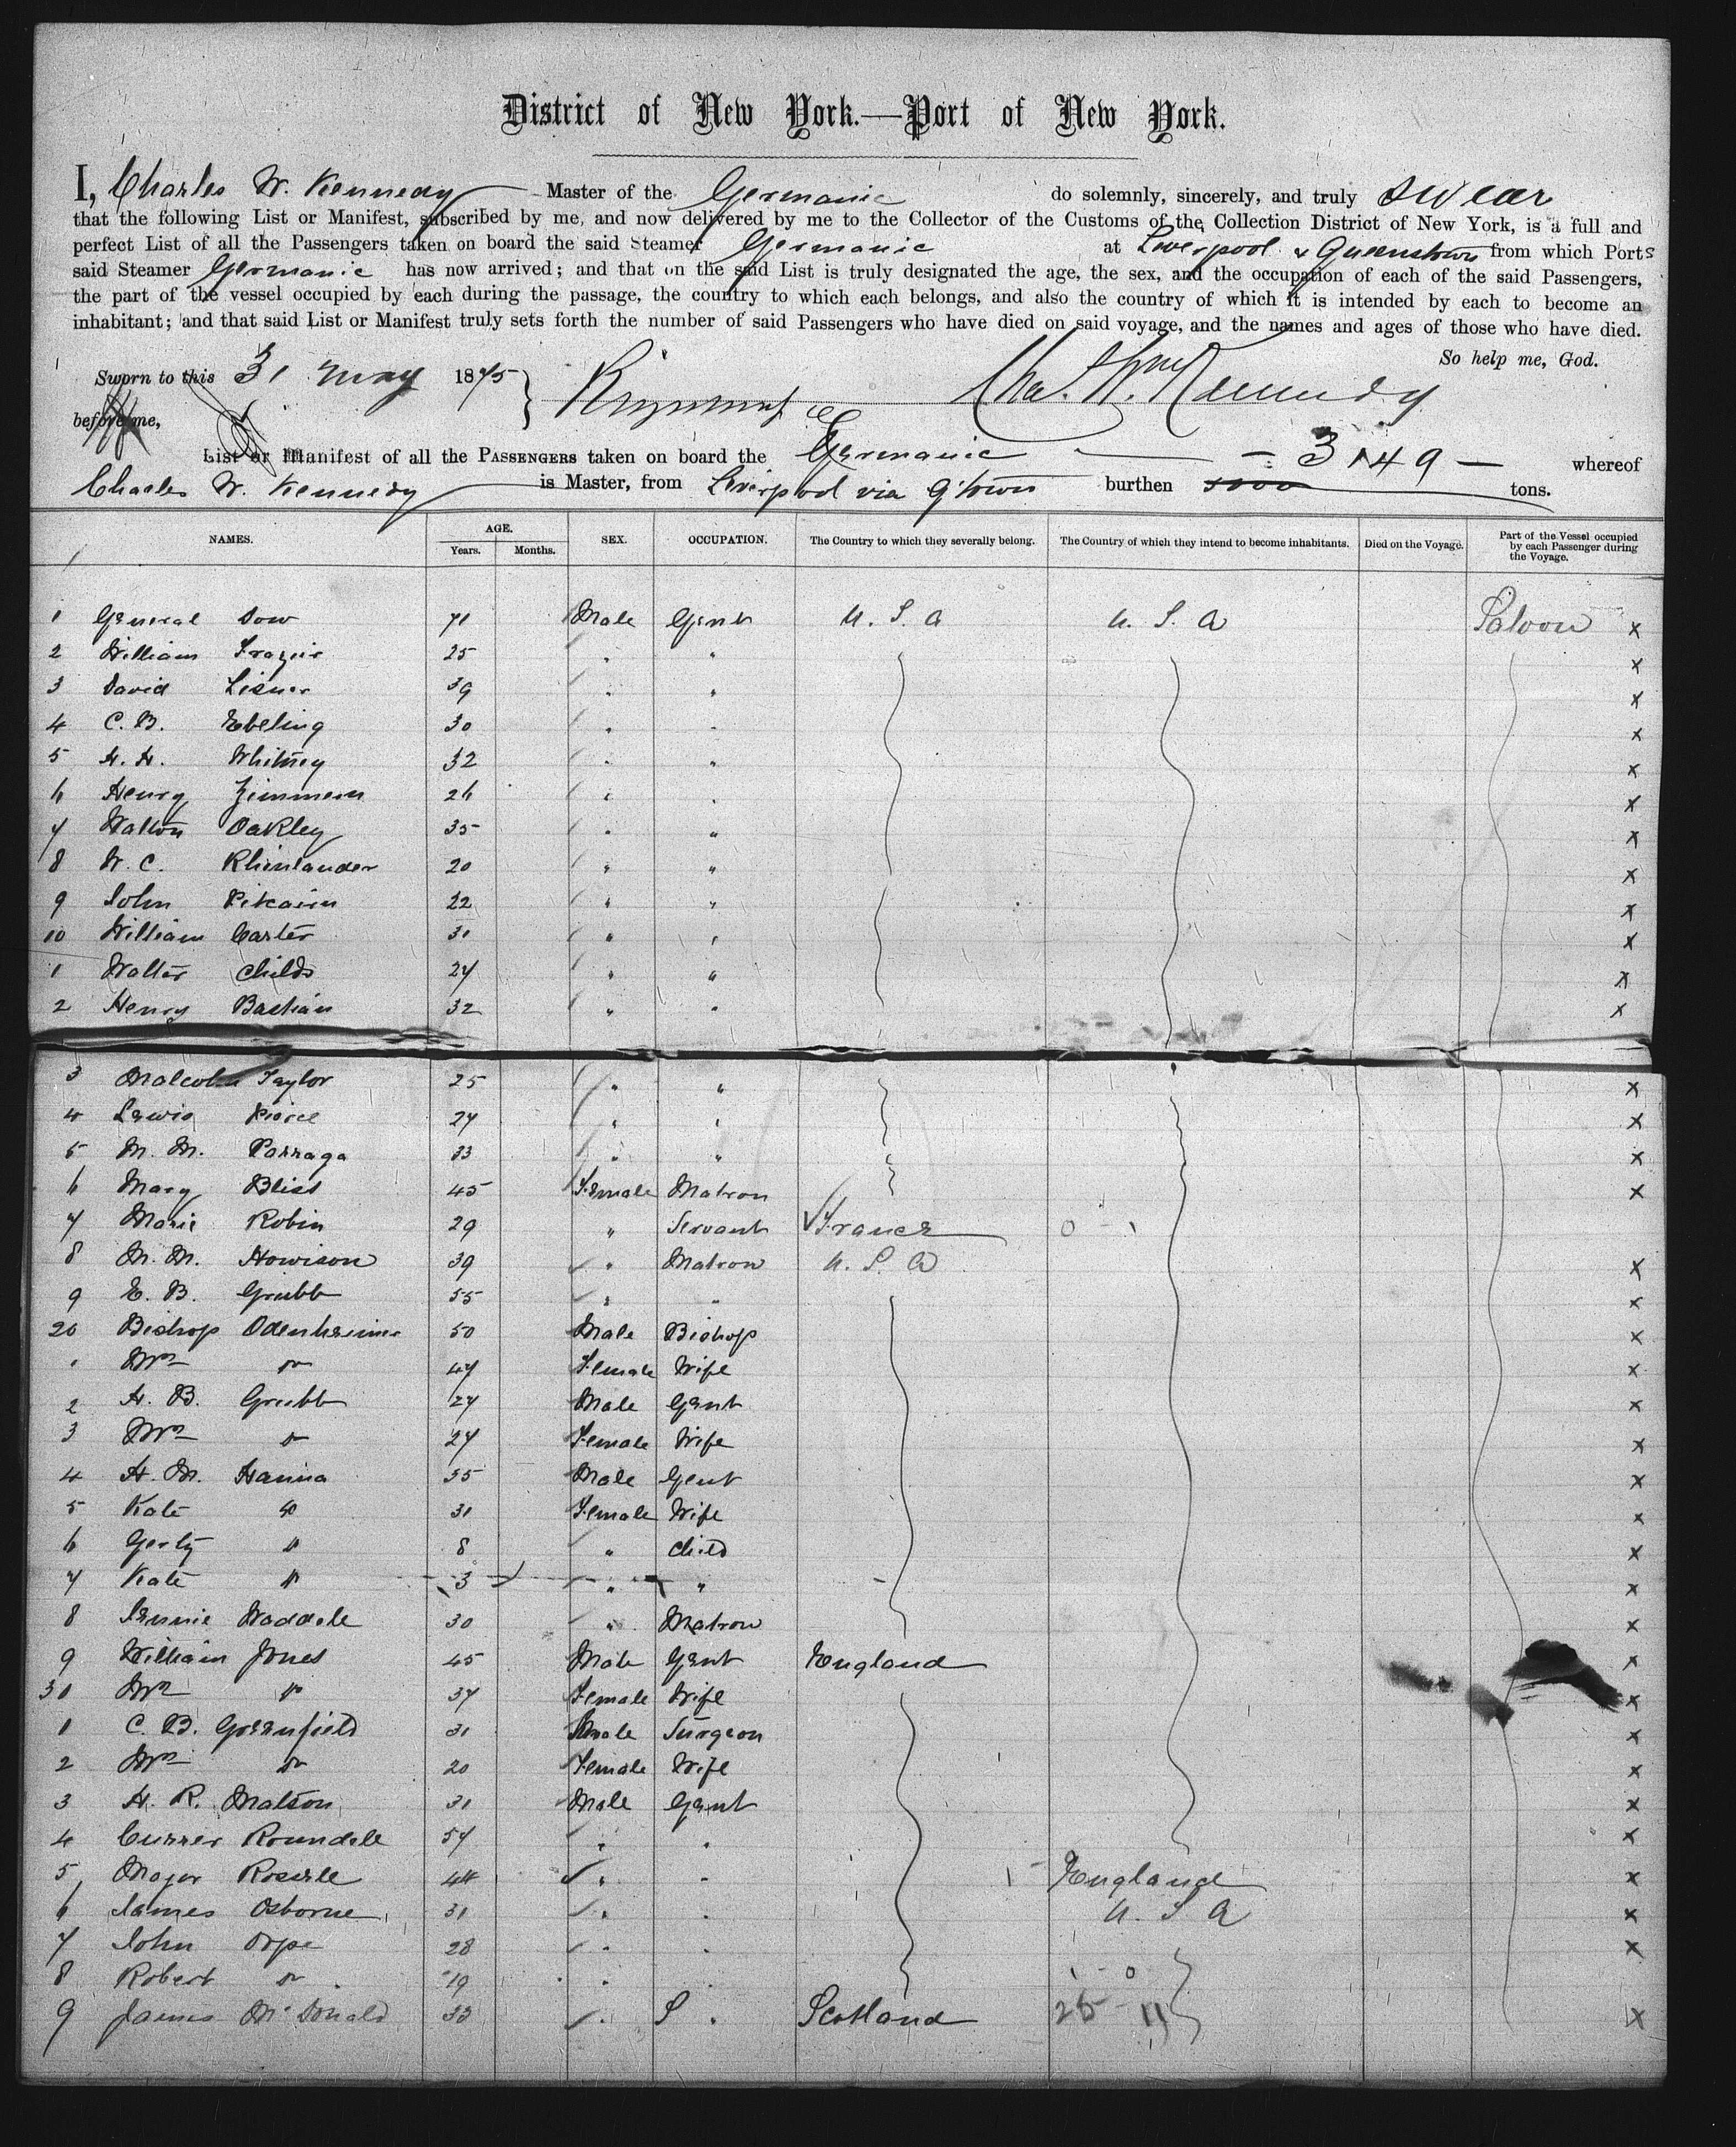 District of New York.—Port of New York.
I, Charles W. Kennedy Master of the Germanic do solemnly, sincerely, and truly swear
that the following List or Manifest, subscribed by me, and now delivered by me to the Collector of the Customs of the Collection District of New York, is a full and
perfect List of all the Passengers taken on board the said Steamer Germanic at Liverpool & Queenstown from which Ports
said Steamer Germanic has now arrived; and that on the said List is truly designated the age, the sex, and the occupation of each of the said Passengers,
the part of the vessel occupied by each during the passage, the country to which each belongs, and also the country of which it is intended by each to become an
inhabitant; and that said List or Manifest truly sets forth the number of said Passengers who have died on said voyage, and the names and ages of those who have died.
So help me, God.
Sworn to this 31 May 1875 Chas. Wm. Kennedy
before me,
List or Manifest of all the PASSENGERS taken on board the Germanic whereof
Charles W. Kennedy is Master, from Liverpool via Q'town burthen tons.
NAMES. AGE. SEX. OCCUPATION. The Country to which they severally belong. The Country of which they intend to become inhabitants. Died on the Voyage. Part of the Vessel occupied by each Passenger during the Voyage.
Years. Months.
1 General Dow 71 Male Gent U. S. A U. S. A Saloon x
2 William Frazier 25 " " x
3 David Lisner 39 " " x
4 C. B. Ebeling 30 " " x
5 H. H. Whitney 32 " " x
6 Henry 26 " " x
7 Walton Oakley 35 " " x
8 W. C. Rhinlander 20 " " x
9 John Pitcairn 22 " " x
10 William Carter 31 " " x
1 Walter Childs 27 " " x
2 Henry Bastian 32 " " x
3 Malcolm Taylor 25 " " x
4 Lewis Pierce 27 " " x
5 M. M. Parraga 33 " " x
6 Mary Bliss 45 Female Matron x
7 Marie Robin 29 " Servant France
8 M. M. Howison 39 " Matron U. S. A x
9 E. B. Grubb 55 " " x
20 Bishop Odenheimer 50 Male Bishop x
1 Mrs do 47 Female Wife x
2 H. B. Grubb 27 Male Gent x
3 Mrs do 27 Female Wife x
4 H. M. Hanna 35 Male Gent x
5 Kate do 31 Female Wife x
6 Gerty do 8 " Child x
7 Kate do 3 " " x
8 Jennie Waddele 30 " Matron x
9 William Jones 45 Male Gent England x
30 Mrs do 37 Female Wife x
1 C. B. Greenfield 31 Male Surgeon x
2 Mrs do 20 Female Wife x
3 H. R. Matson 31 Male Gent x
4 Currer Roundele 57 " " x
5 Major 44 " " England x
6 James Osborne 31 " " U. S. A x
7 John Pope 28 " " x
8 Robert do 19 " "
9 James McDonald 33 " S " Scotland x